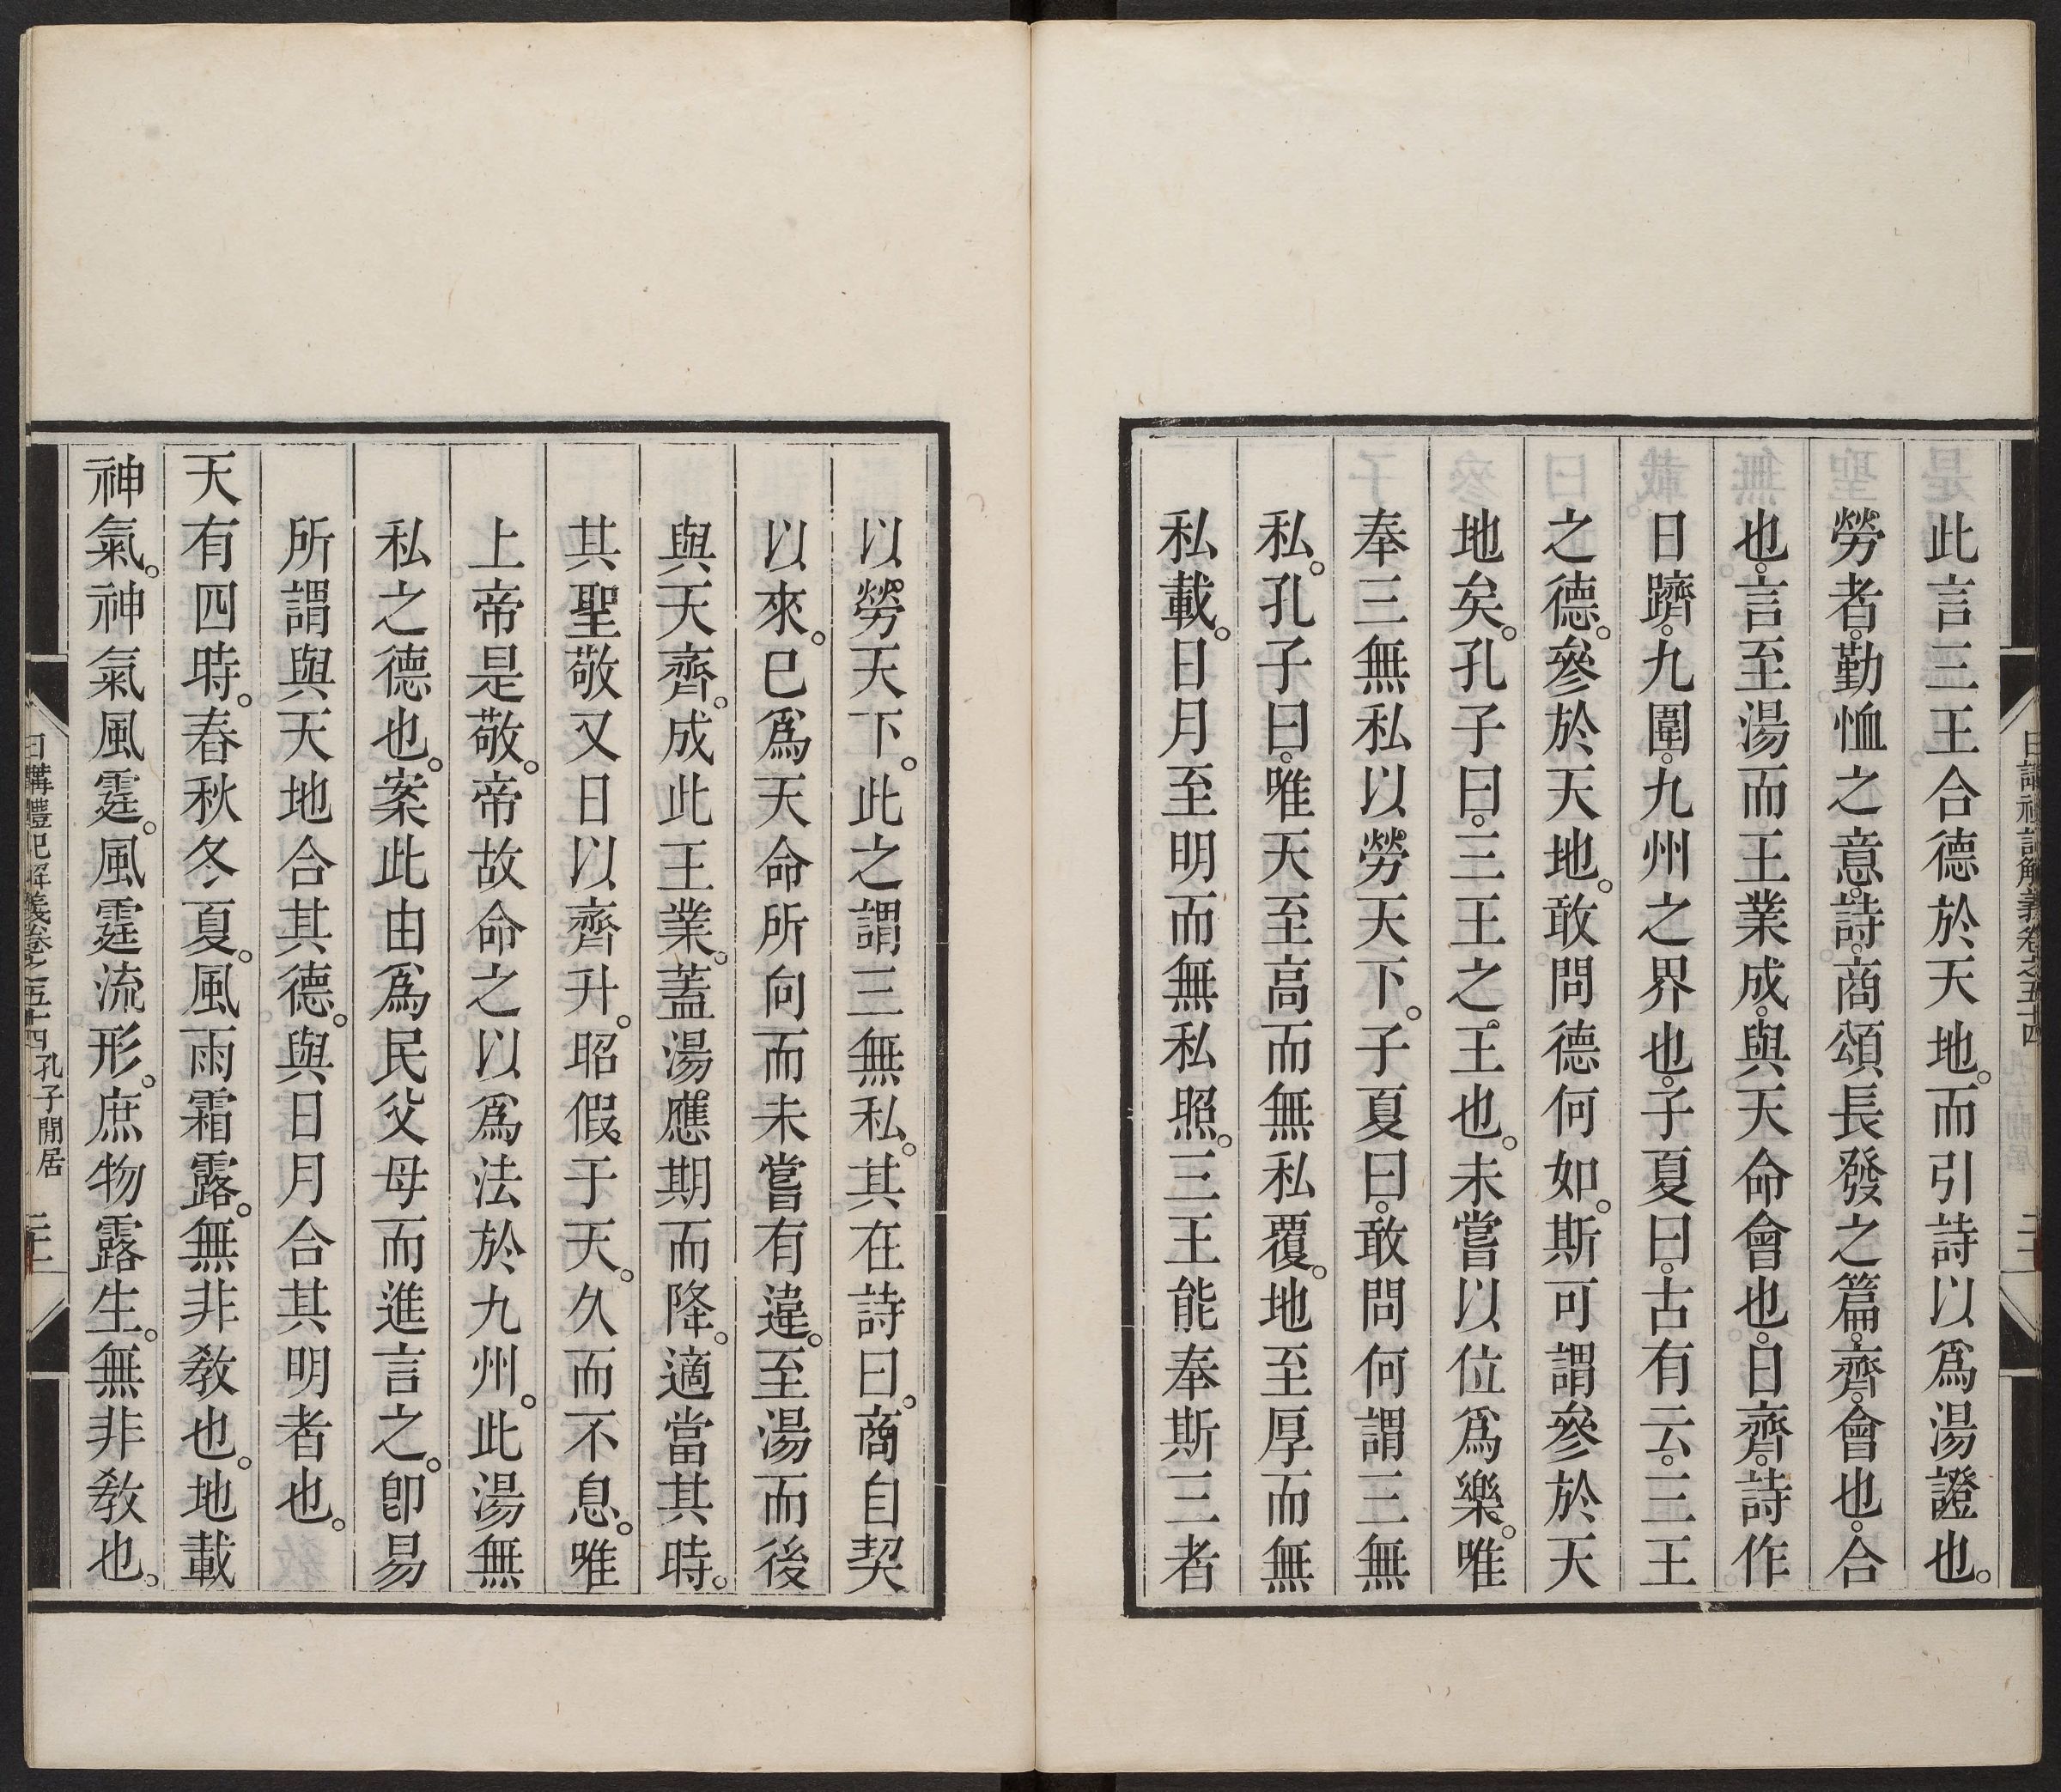 日講禮記解義卷之五十四
二十一
此言三王合德於天地。而引詩以爲湯證也。
勞者。勤恤之意。詩。商頌長發之篇。齊。會也。合
也。言至湯而王業成。與天命會也。日齊。詩作
日躋。九圍。九州之界也。子夏曰。古有云。三王
之德。參於天地。敢問德何如。斯可謂參於天
地矣。孔子曰。三王之王也。未嘗以位爲樂。唯
奉三無私以勞天下。子夏曰。敢問何謂三無
私。孔子曰。唯天至高而無私覆。地至厚而無
私載。日月至明而無私照。三王能奉斯三者
以勞天下。此之謂三無私。其在詩曰。商自契
以來。已爲天命所向而未嘗有違。至湯而後
與天齊。成此王業。蓋湯應期而降。適當其時。
其聖敬又日以齊升。昭假于天。久而不息。唯
上帝是敬。帝故命之以爲法於九州。此湯無
私之德也。案此由爲民父母而進言之。卽易
所謂與天地合其德。與日月合其明者也。
天有四時。春秋冬夏。風雨霜露。無非教也。地載
神氣。神氣風霆。風霆流形。庶物露生。無非教也。
日講禮記解義卷之五十四 孔子閒居